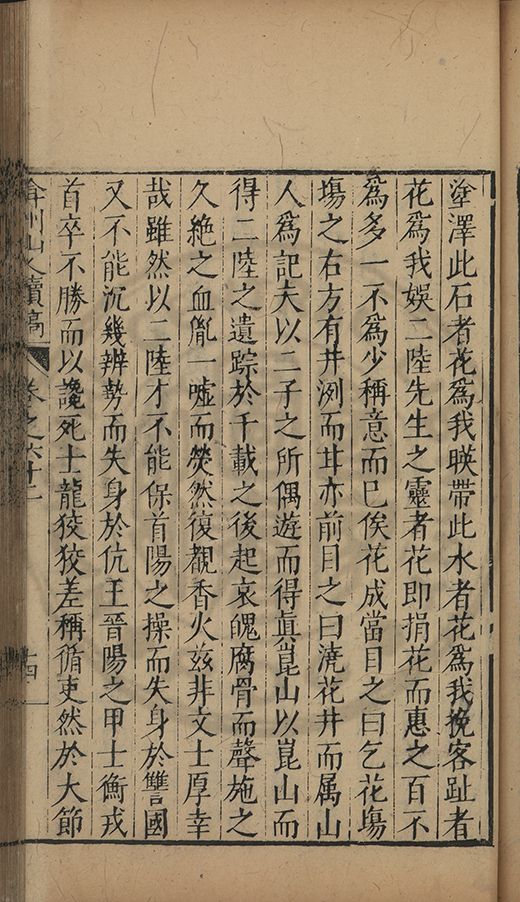 塗澤此石者花爲我暎帶此水者花爲我挽客趾者
花爲我娛二陸先生之靈者花即捐花而惠之百不
爲多一不爲少稱意而巳俟花成當目之曰乞花塲
塲之右方有井洌而甘亦前目之曰澆花井而属山
人爲記夫以二子之所偶遊而得眞崑山以崑山而
得二陸之遺踪於千載之後起哀醜腐骨而聲施之
久絶之血胤一嘘而煢然復覩香火兹非文士厚幸
哉雖然以二陸才不能保首陽之操而失身於讐國
又不能沉幾辨勢而失身於伉王晉陽之甲士衡戎
首卒不勝而以讒死士龍狡狡差稱循吏然於大節
弇州山人續稿 卷之六十二 十四